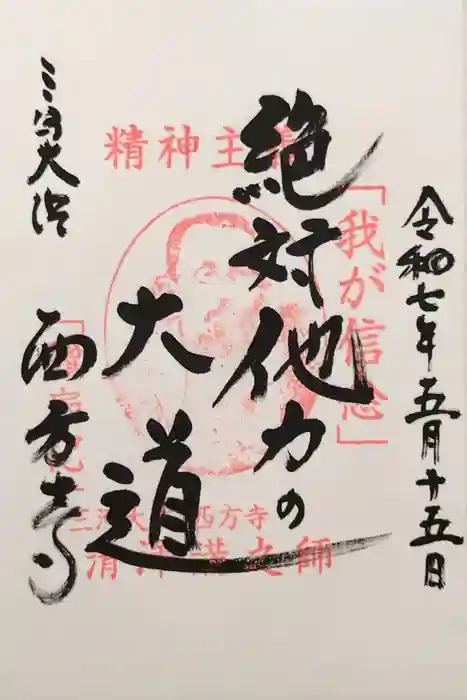 令和七年五月十五日
「我が信念」
絶対他力の
大道
精神主義
三河大浜
西方寺
三河大浜西方寺
清澤満之師